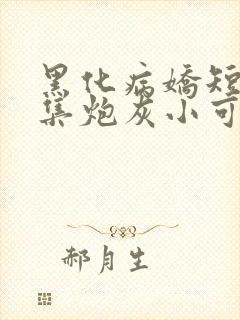 黑化病娇短
集炮灰小可
郝月生